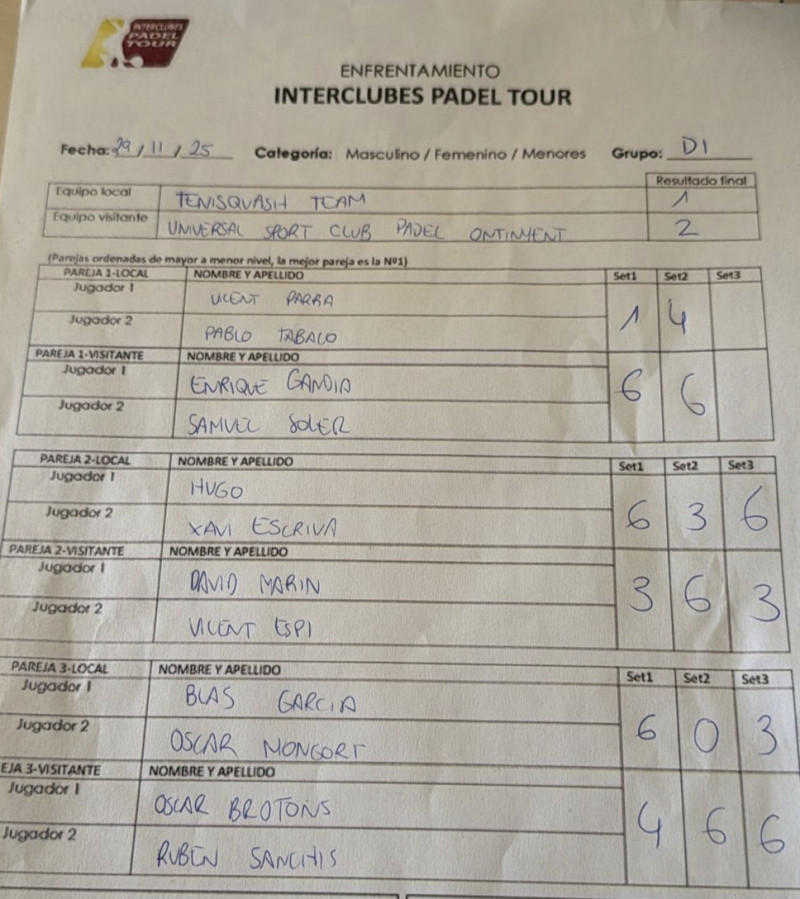 INTERCLUBES
PADEL
TOUR
ENFRENTAMIENTO
INTERCLUBES PADEL TOUR
Fecha: 29 / 11 / 25 Categoría: Masculino / Femenino / Menores Grupo: D1
Resultado final
Equipo local TENISQUASH TEAM 1
Equipo visitante UNIVERSAL SPORT CLUB PADEL ONTINYENT 2
(Parejas ordenadas de mayor a menor nivel, la mejor pareja es la Nº1)
PAREJA 1-LOCAL NOMBRE Y APELLIDO Set1 Set2 Set3
Jugador 1 VICENT PARRA
1 4
Jugador 2 PABLO TABACO
PAREJA 1-VISITANTE NOMBRE Y APELLIDO
Jugador 1 ENRIQUE GANDIA
6 6
Jugador 2 SAMUEL SOLER
PAREJA 2-LOCAL NOMBRE Y APELLIDO Set1 Set2 Set3
Jugador 1 HUGO
6 3 6
Jugador 2 XAVI ESCRIVA
PAREJA 2-VISITANTE NOMBRE Y APELLIDO
Jugador 1 DAVID MARIN
3 6 3
Jugador 2 VICENT ESPI
PAREJA 3-LOCAL NOMBRE Y APELLIDO Set1 Set2 Set3
Jugador 1 BLAS GARCIA
6 0 3
Jugador 2 OSCAR MONGORT
EJA 3-VISITANTE NOMBRE Y APELLIDO
Jugador 1 OSCAR BROTONS
4 6 6
Jugador 2 RUBEN SANCHIS